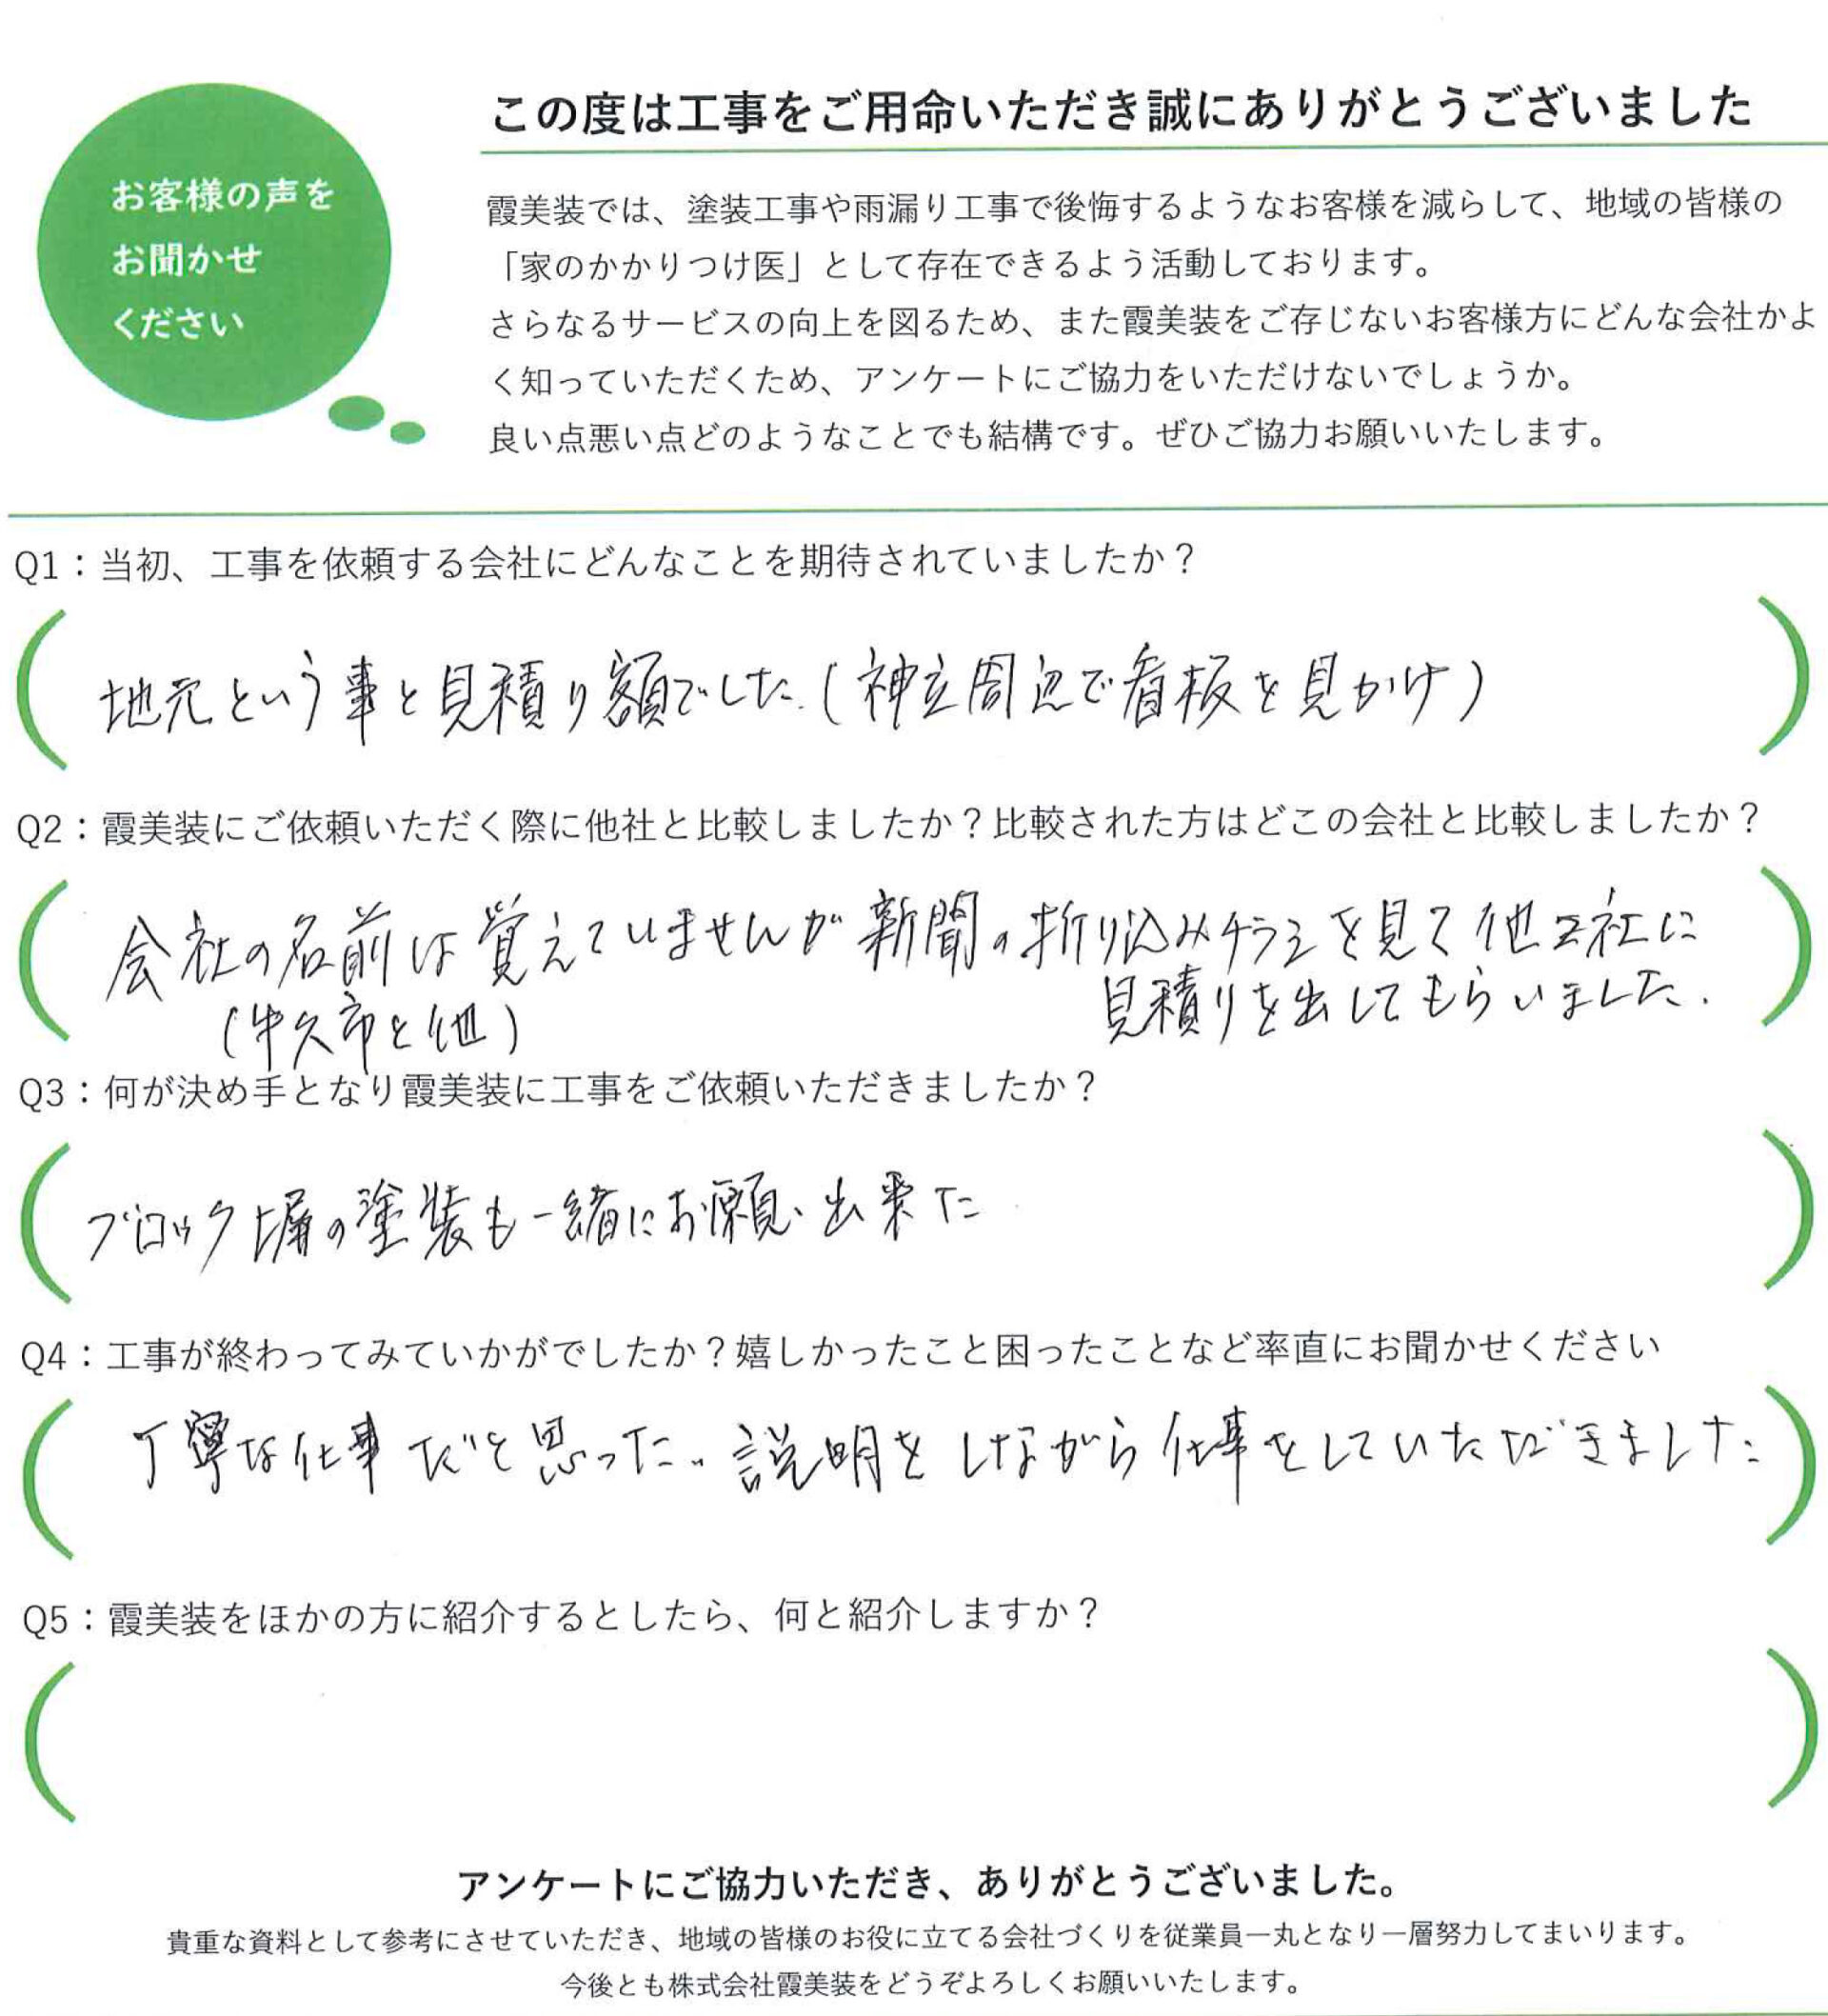 お客様の声を
お聞かせ
ください
この度は工事をご用命いただき誠にありがとうございました
霞美装では、塗装工事や雨漏り工事で後悔するようなお客様を減らして、地域の皆様の
「家のかかりつけ医」として存在できるよう活動しております。
さらなるサービスの向上を図るため、また霞美装をご存じないお客様方にどんな会社かよ
く知っていただくため、アンケートにご協力をいただけないでしょうか。
良い点悪い点どのようなことでも結構です。ぜひご協力お願いいたします。
Q1：当初、工事を依頼する会社にどんなことを期待されていましたか？
地元という事と見積り額でした.(神立周辺で看板を見かけ)
Q2：霞美装にご依頼いただく際に他社と比較しましたか？比較された方はどこの会社と比較しましたか？
会社の名前は覚えていませんが新聞の折り込みチラシを見て他2社に
見積りを出してもらいました.
(牛久市と他)
Q3：何が決め手となり霞美装に工事をご依頼いただきましたか？
ブロック塀の塗装も一緒にお願い出来た
Q4：工事が終わってみていかがでしたか？嬉しかったこと困ったことなど率直にお聞かせください
丁寧な仕事だと思った..説明をしながら仕事をしていただきました
Q5：霞美装をほかの方に紹介するとしたら、何と紹介しますか？
アンケートにご協力いただき、ありがとうございました。
貴重な資料として参考にさせていただき、地域の皆様のお役に立てる会社づくりを従業員一丸となり一層努力してまいります。
今後とも株式会社霞美装をどうぞよろしくお願いいたします。